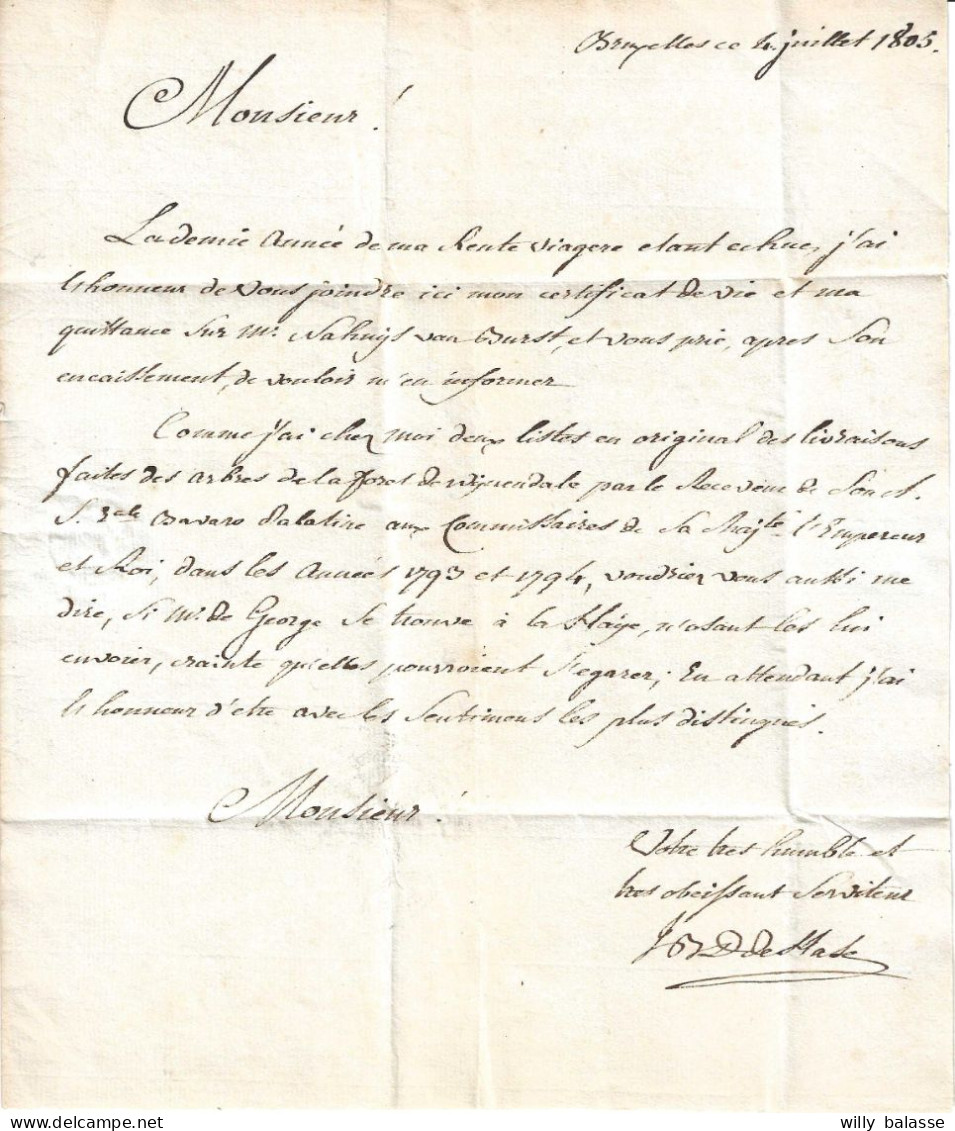 Bruxelles ce 4 juillet 1805.
Monsieur!
La demie Année de ma Rente viagere etant echue, j'ai
l'honneur de vous joindre ici mon certificat de vie et ma
quittance sur Mr. Nahuijs van Burst, et vous prie, apres son
encaissement, de vouloir m'en informer
Comme j'ai chez moi deux listes en original des livraisons
faites des arbres de la foret de wijnendale par le Receveur de Son A.
S. Elle Bavaro Palatine aux Commissaires de Sa Majté l'Empereur
et Roi, dans les Années 1793 et 1794, voudriez vous aussi me
dire, si Mr. de George se trouve à la Haÿe, n'osant les lui
envoier, crainte qu'elles pourroient s'egarer; En attendant j'ai
l'honneur d'etre avec les sentimens les plus distingués.
Monsieur!
Votre tres humble et
tres obeissant Serviteur
de Hase
willy balasse